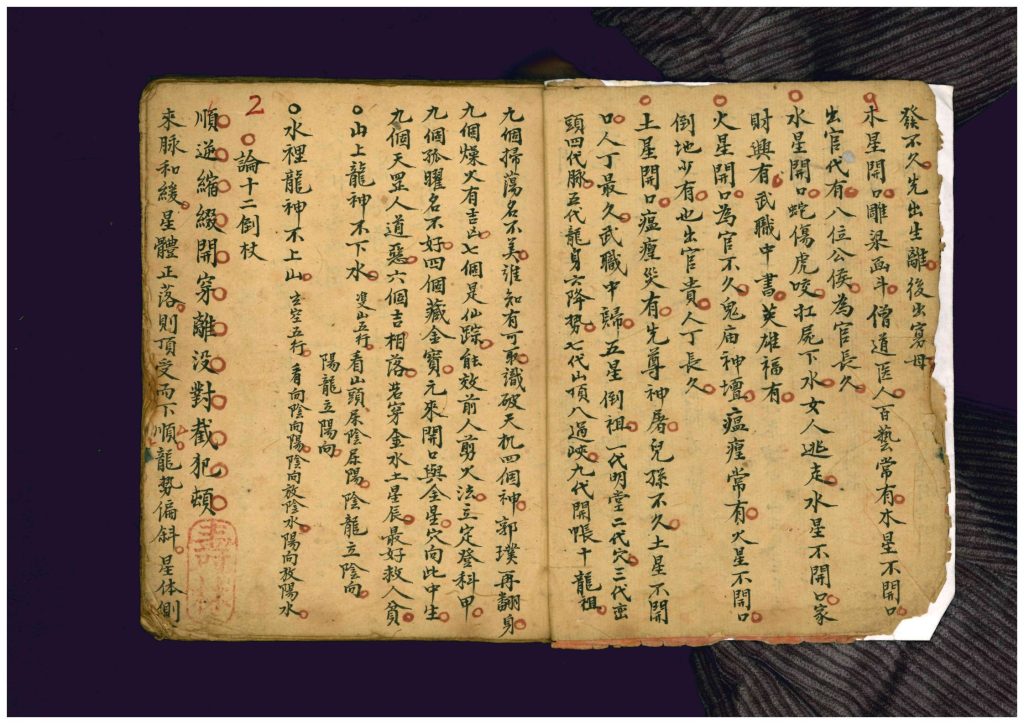 發不久先出生離後出寡母
木星開口雕梁畫斗僧道医人百藝常有木星不開口
出官代有八位公侯為官長久
水星開口蛇傷虎咬扛屍下水女人逃走水星不開口家
財興有武職中書英雄福有
火星開口為官不久鬼庙神壇瘟瘽常有火星不開口
倒地少有也出官貴人丁長久
土星開口瘟瘽災有先尊神屠兒孫不久土星不開
口人丁最久武職中歸五星倒祖一代明堂二代穴三代
頭四代脉五代龍身六降勢七代山頂八過峽九代開帳十龍祖
九個掃蕩名不美誰知有可取識破天机四個神郭璞再翻身
九個燥火有吉凶七個是仙踪能效前人剪火法立定登科甲
九個孤曜名不好四個藏金寶元來開口與金星穴向此中生
九個天罡人道惡六個吉相落若穿金水土星辰最好救人貧
山上龍神不下水 雙山五行 看山頭屎陰屎陽陰龍立陰向
陽龍立陽向
水裡龍神不上山 玄空五行 看向陰向陽陰向放陰水陽向放陽水
2
論十二倒杖
順逆縮綴開穿離没對截犯頓
來脉和緩星體正落則頂受而下順龍勢偏斜星体側